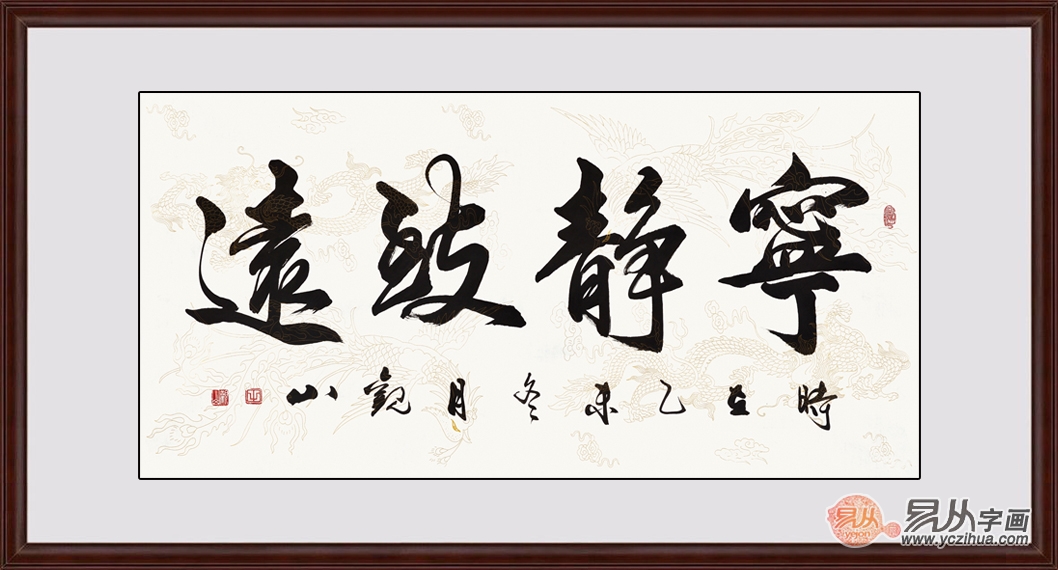 寧靜致遠
時在乙未冬月觀山
易从字画
www.yczihua.com
易从
yiyicn